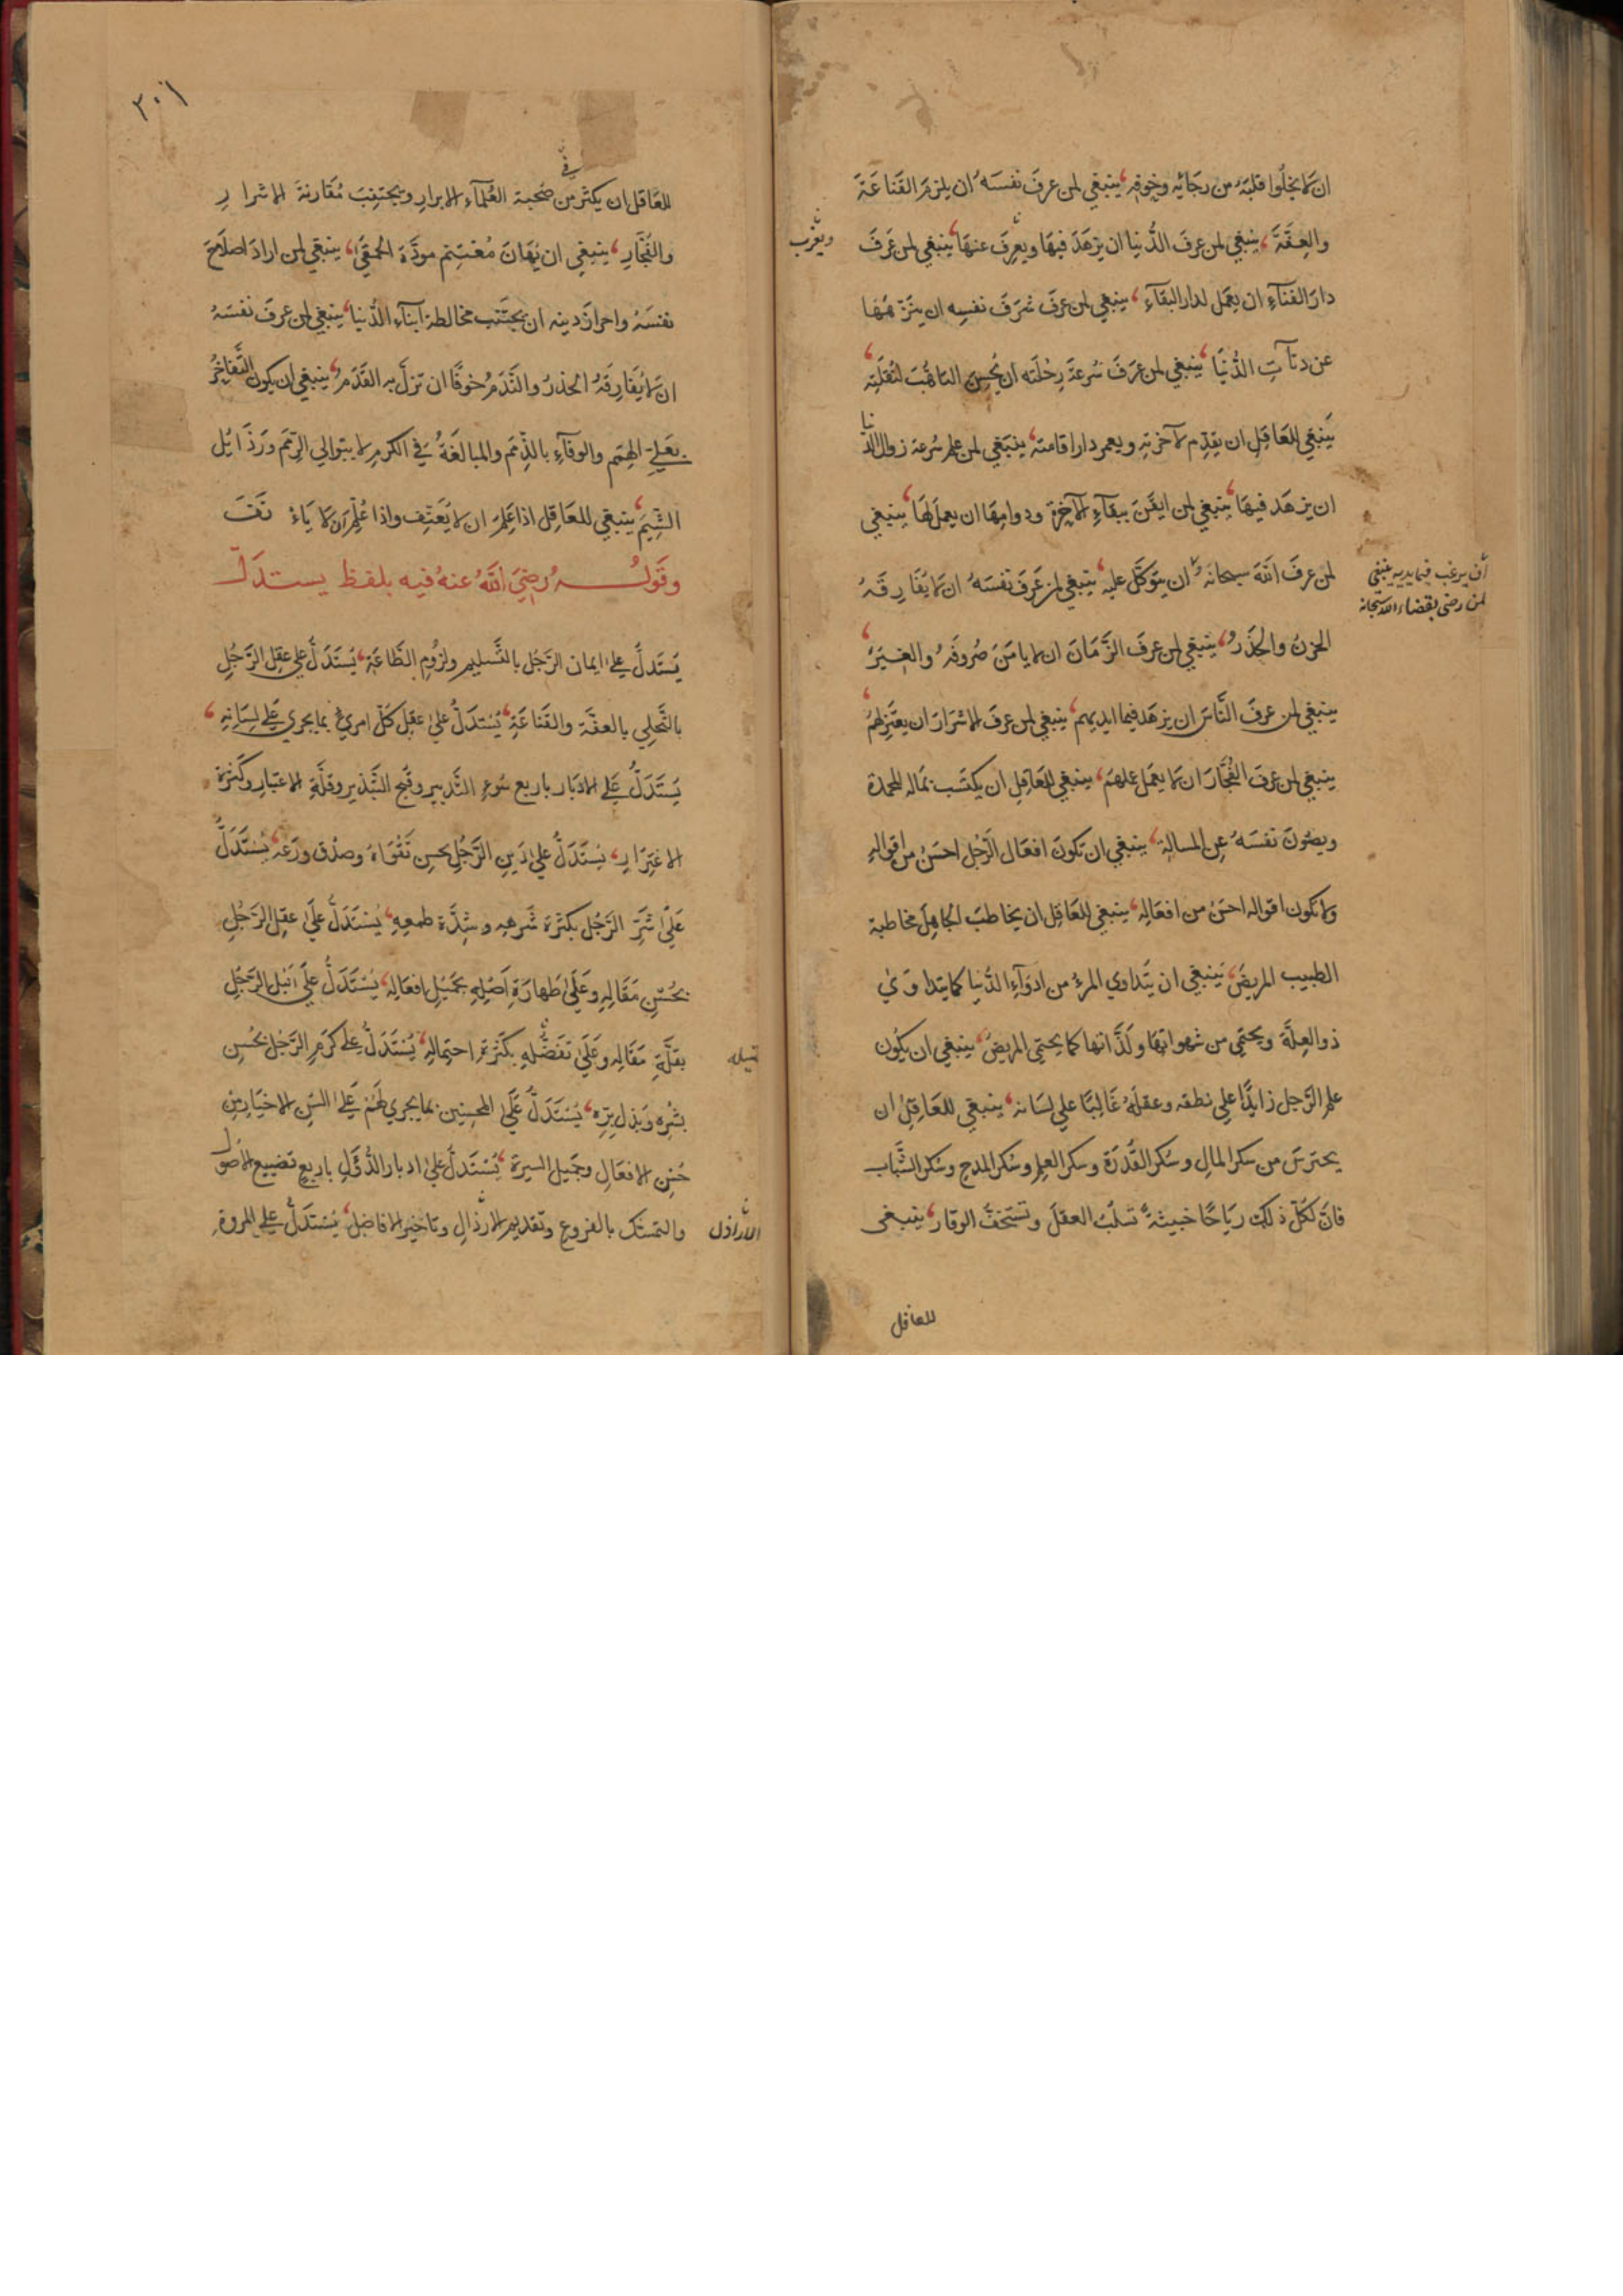 ان لا يخلوا قلبَهُ من رجَائِه وخوفِهِ ينبغي لمن عرفَ نفسَهُ ان يلزمَ القَناعَةَ
والعِفَّةَ ينبغي لمن عرفَ الدُّنيا ان يزهَدَ فيهَا ويعزفَ عنهَا ينبغي لمن عَرَفَ
ويعزب
دارَ الفنآءِ ان يعمَل لدار البقآءِ ينبغي لمن عرفَ شرَفَ نفسِه ان ينزّههَا
عن دنآتِ الدُّنيَا ينبغي لمن عَرَفَ سُرعَةَ رِحْلَته ان يُحسِنَ التاهُّبَ لنُقلَتِه
يَنبَغي للعَاقِلِ ان يقدّم لآخرتِهِ ويعمر دارَ اقامته ينبَغي لمن علم سُرعةَ زوال الدنيا
ان يزهَد فيهَا ينبغي لمن ايقَنَ ببقآءِ الآخِرَةِ ودوامِهَا ان يعملَ لهَا ينبغي
لمن عرفَ اللّهَ سبحانهُ ان يتوكَّل عليه ينبغي لمن عَرَفَ نفسَهُ ان لا يفَارِقَهُ
أن يرغب فيما يديه ينبغي
لمن رضى بقضاء الله سبحانه
الحزنُ والحَذَرُ ينبغي لمن عرفَ الزَّمَانَ ان لا يامَنَ صُروفَهُ والغِيَرَ
ينبغي لمن عرفَ النَّاسَ ان يزهَد فيما ايديهم ينبغي لمن عرفَ الاشرَارَ ان يعتزِلهمُ
ينبغي لمن عرفَ الفُجَّارَ ان لا يعمَل عملهمَ ينبغي للعَاقِلِ ان يكتسَب بمَاله المحمدة
ويصُونَ نفسَهُ عنِ المسالةِ ينبغي ان تكونَ افعَال الرَّجُل احسَنَ من اقوالِهِ
ولا تكون اقواله احسَنَ من افعَالِهِ ينبغي للعَاقِل ان يخاطبَ الجاهِلَ مخاطبة
الطبيب المريضَ يَنبَغي ان يَتداوي المرءُ من ادوَآءِ الدُّنيا كما يتداوَيٰ
ذو العِلَّةِ ويحتَمي من شهواتِهَا ولَذّاتها كما يحتمي المريضُ ينبغي ان يكُون
علم الرَّجل زايدًا على نطقه وعقلُهُ غَالِبًا على لسَانه ينبغي للعَاقِلِ ان
يحترسَ من سكر المالِ وسُكر القُدرَة وسكر العِلم وسُكر المدحِ وسُكر الشَّبَاب
فانَّ لكُلّ ذلكَ رِيَاحًا خبيثةً تَسلبُ العقلَ وتَستخفُّ الوقارَ ينبغى
للعاقل
٣٠١
للعَاقل ان يكثر من صُحبة العُلَمآءِ الابرارِ ويجتنبَ مُقَارنةَ الاشرارِ
في
والفُجّارِ ينبغي ان يُهَانَ مُغتَنِم مودَّةَ الحمقَيٰ ينبغي لمن ارادَ اصلَاحَ
نفسَهُ واحرازَ دينه ان يجتَنب مخالطةَ ابنآءِ الدُّنيا ينبغي لمن عرفَ نفسَهُ
ان لا يُفَارِقَهُ الحذرُ والنَّدَمُ خوفًا ان تزلَّ به القَدَمُ ينبغي ان يكون التَّفَاخرُ
بعَلِيّ الهِمَم والوفآءِ بالذّمَم والمبالَغَةُ في الكرم لا ببَوالي الرِّمَم ورَذَائل
الشِّيَم ينبغي للعَاقِل اذا عَلَّمَ ان لا يُعَنِّف واذا عُلِّمَ ان لا يَاءْنَفَ
وقَولُهُ رضِيَ اللَّهُ عنهُ فيه بلفظ يستدَلُّ
يُسْتَدَلُّ عليٰ ايمان الرّجُل بالتّسليم ولزُومِ الطَّاعَةِ يُسْتَدَلُّ علي عقل الرّجُل
بالتَّحلي بالعفَّة والقَناعَةِ يُسْتدَلُّ علىٰ عَقل كلّ امرئٍ بما يجري عَلي لسَانِهِ
يُسْتَدَلُّ عَلي الادبَار باربع سُوء التَّدبير وقُبح التَّبذير وقلَّة الاعتبار وكثرة
الاغترَارِ يُسْتَدَلُّ علىٰ دَين الرّجُل بحسن تَقْوَاهُ وصدْق ورَعهِ يُسْتَدَلُّ
عَلَىٰ شَرِّ الرّجُل بكثرَة شَرهِهِ وشدَّة طمعهِ يُسْتَدَلُّ عَلىٰ عقل الرَّجُل
بحُسْنِ مَقَالِهِ وعَلَىٰ طَهارَةِ اَصْلِهِ بجَمْيلِ افعَالِهِ يُسْتَدَلُّ عَلىٰ نُبْل الرَّجُلِ
بقلَّةِ مَقَالِهِ وعَلَىٰ تَفَضُّلِهِ بكَثرَةِ احتِمالِهِ يُسْتَدَلُّ علىٰ كرَم الرّجُل بحُسنِ
بشْرِهِ وبَذلِ بِرِّهِ يُسْتَدَلُّ عَلَىٰ المحسِنين بما يجري لهُمْ عَلىٰ السُن الاخيَار من
حُسْنِ الافعَالِ وجَميلِ السيرة يُسْتَدَلُّ علىٰ ادبار الدُّوَلِ باربعٍ تضييع الاصُول
والتمسّك بالفروع وتقديم الارذالِ وتاخير الافاضل يُسْتَدَلُّ علي المروةِ
الاراذل